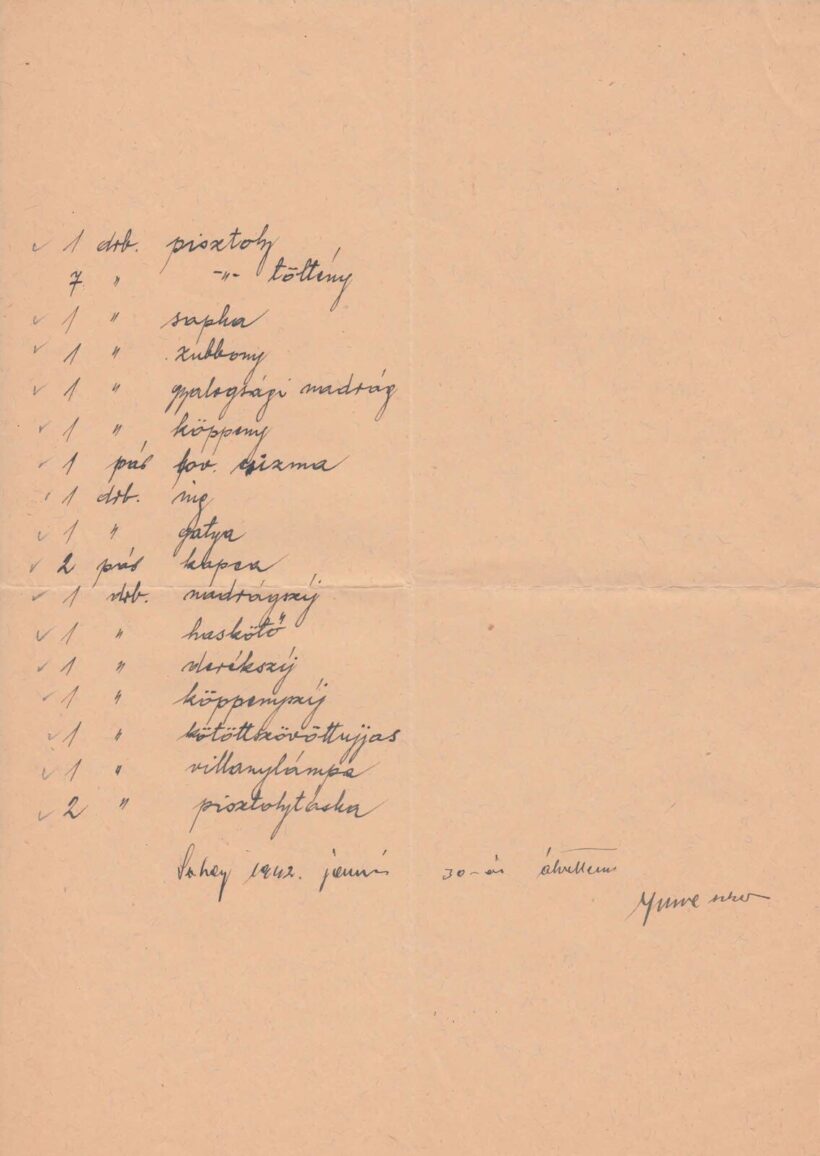 1 drb. pisztoly
7 " -"- töltény
1 " sapka
1 " zubbony
1 " gyalogsági nadrág
1 " köppeny
1 pár csizma
1 drb. ing
1 " gatya
2 pár kapca
1 drb. nadrágszíj
1 " haskötő
1 " derékszíj
1 " köppenyszíj
1 " kötöttszövöttujjas
1 " villanylámpa
2 " pisztolytáska
1942. január 30-án átvettem